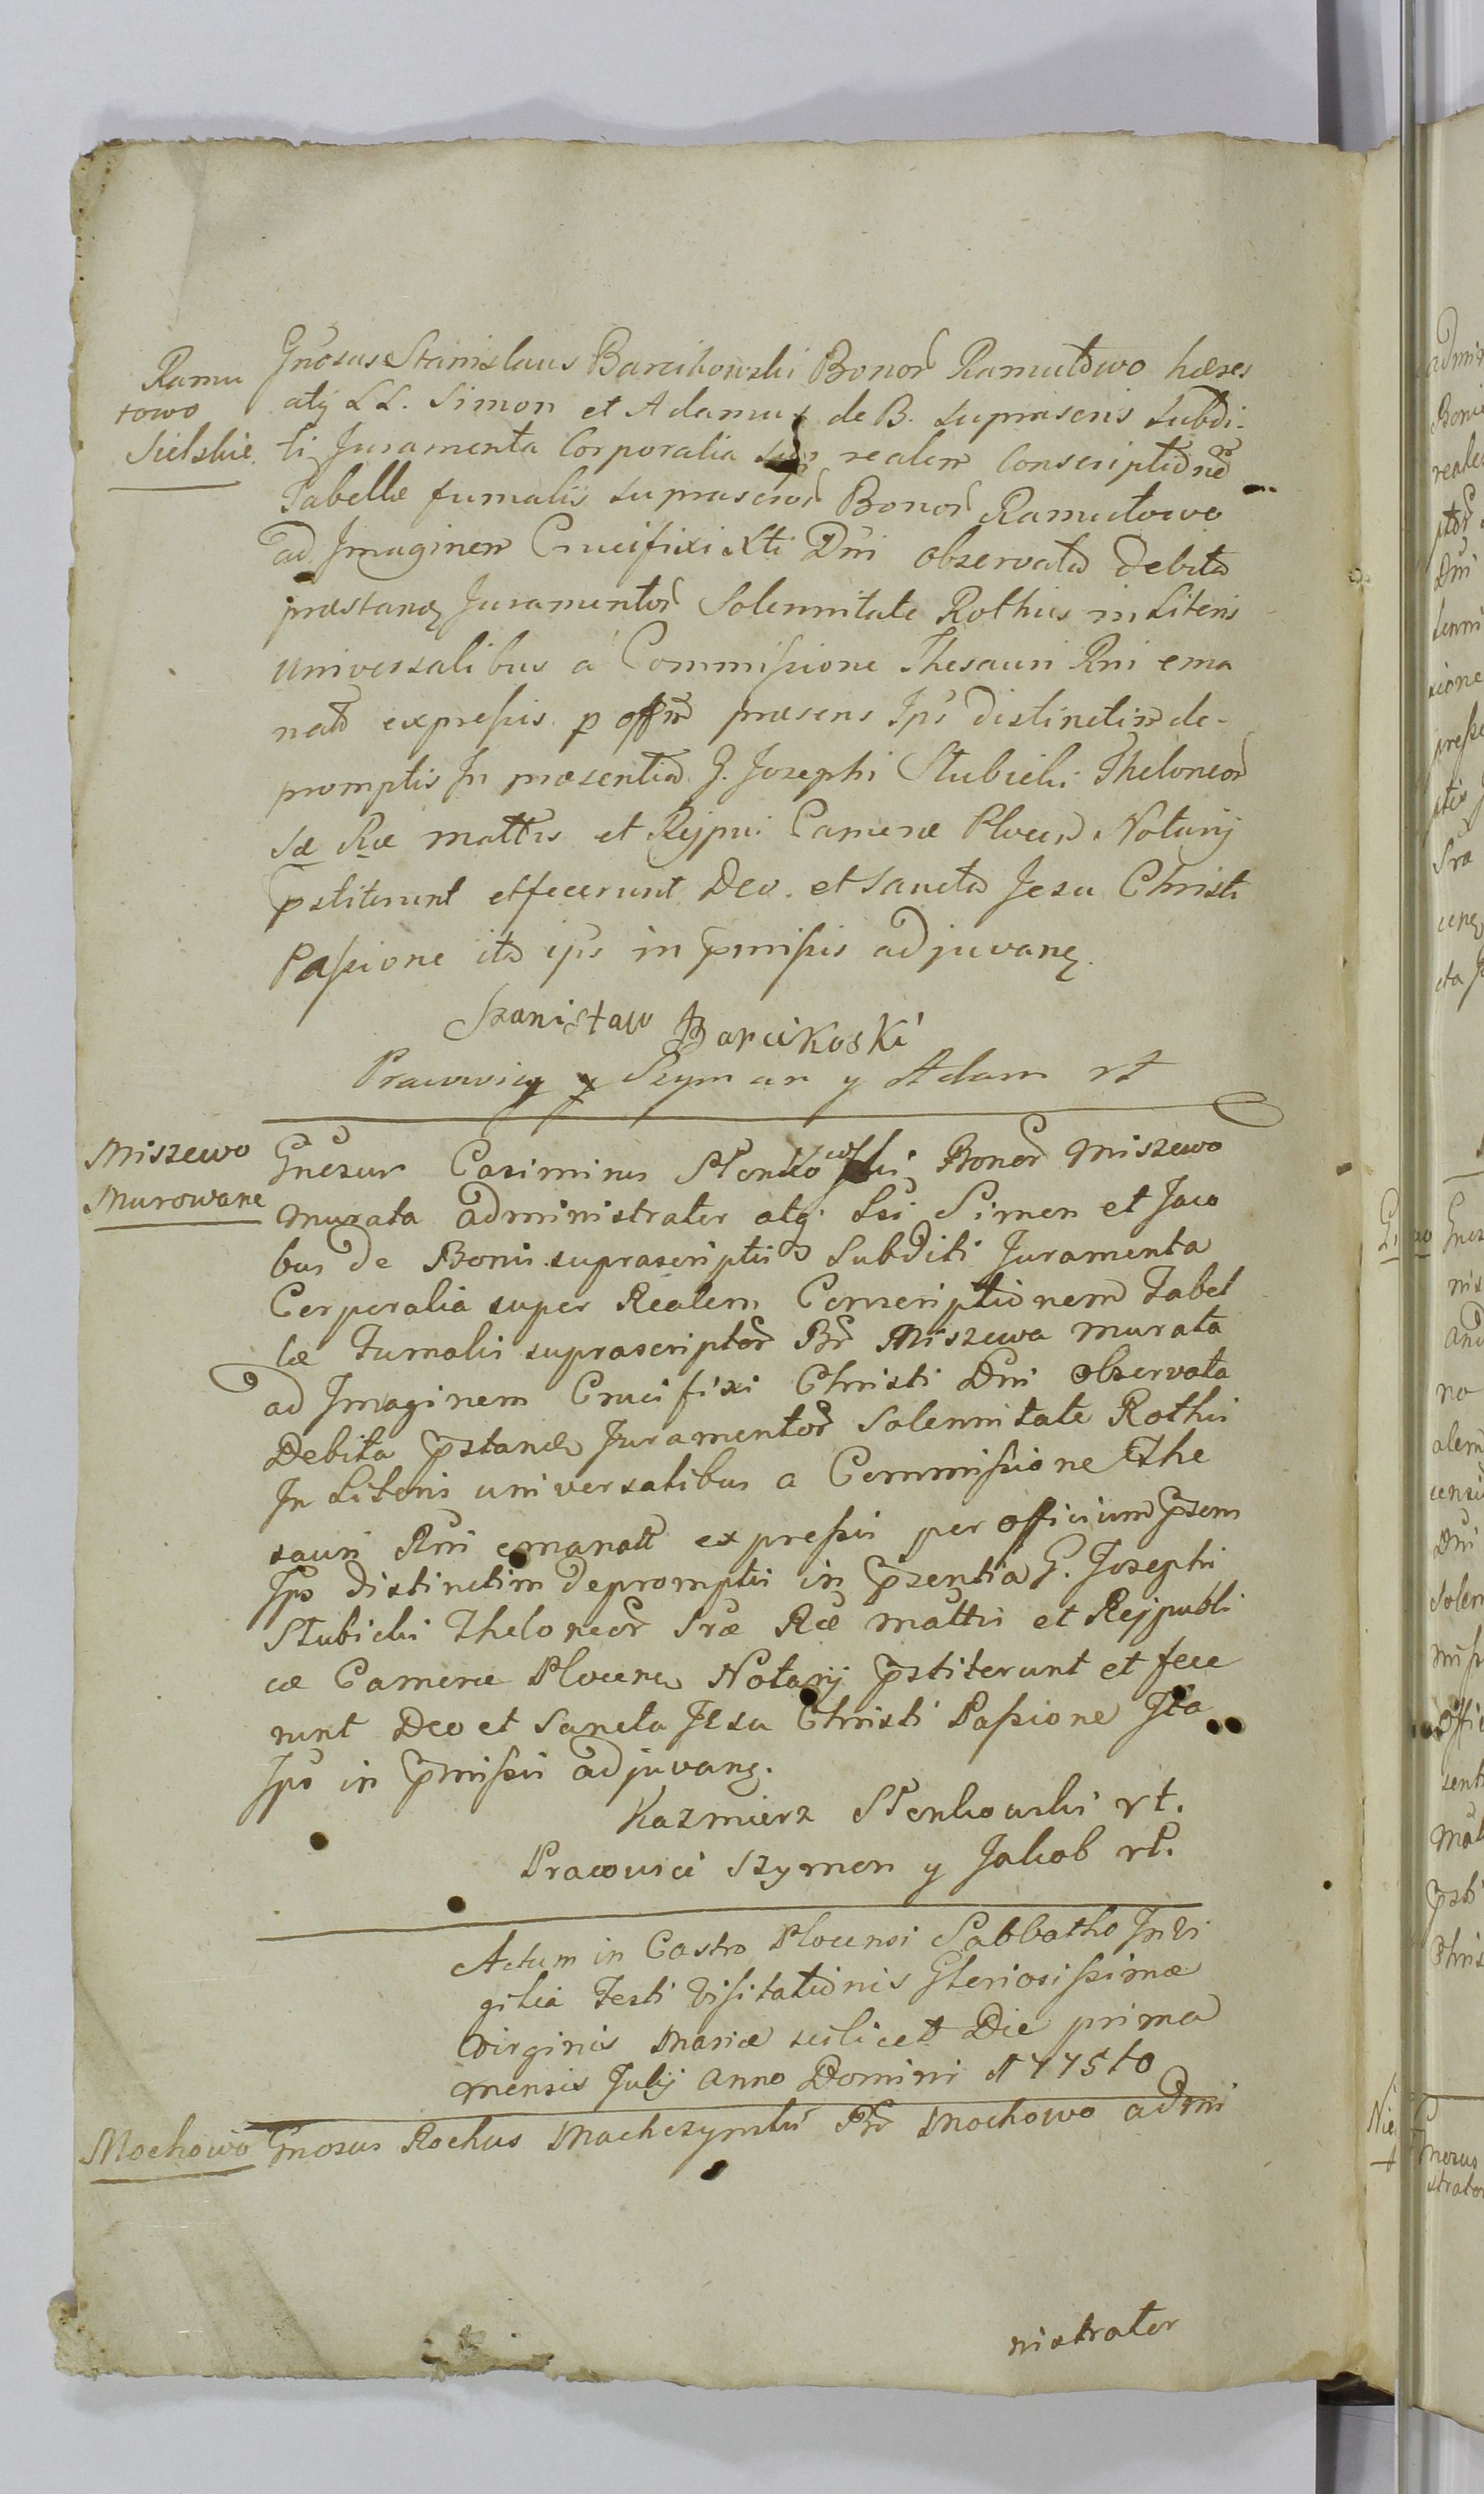 Ramu
towo
Sielskie
Gnosus Stanislaus Barcikowski Bonor Ramutowo hæres
atq LL. Simon et Adamus de B. suprascris Subdi-
ti Juramenta Corporalia realem Conscriptione
Tabellæ fumalis suprascror Bonor Ramutowo
ad Imaginem Crucifixi Xti Dni observata debita
præstanq Juramentor Solennitate Rothis in Literis
universalibus á Commissione Thesauri Rni ema
nat expressis p offm præsens Ips distinctim de-
promptis In præsentia G. Josephi Stubicki Theloneor
Sæ Ræ mattis et Rejpui Cameræ Plocen Notarij
pstiterunt et fecerunt Deo et Sancta Jesu Christi
Passione ita ips in pmissis adjuvanq.
Stanisław Barcikoski
Pracowicy y Szyman y Adam rt
Miszewo
Murowane
Gnosus Casimirus Stenkowski Bonor Miszewo
murata administrator atq. Lsi Simon et Jaco
bus de Bonis suprascriptis Subditi Juramenta
Corporalia super Realem Conscriptionem Tabel
læ Fumalis suprascriptor Br Miszewa murata
ad Imaginem Crucifixi Christi Dni observata
Debita pstanq Juramentor Solennitate Rothis
In Literis universalibus a Commissione The
sauri Rni emanatt expressis per officium psens
Ips distinctim depromptis in psentia G. Josephi
Stubicki Theloneor Sræ Ræ mattis et Rejpubli
cæ Cameræ Plocen Notarij pstiterunt et fece
runt Deo et Sancta Jesu Christi Passione Ita
Ips in pmissis adjuvang.
Kazmierz Stenkowski rt.
Pracowici Szymon y Jakob rt.
Actum in Castro Plocensi Sabbatho In Vi
gilia Festi Visitationis Gloriosissimæ
Virginis Mariæ scilicet Die prima
mensis Julij Anno Domini 1775to
Mochowo
Gnosus Rochus Machczyński Br Mochowo admi
nistrator